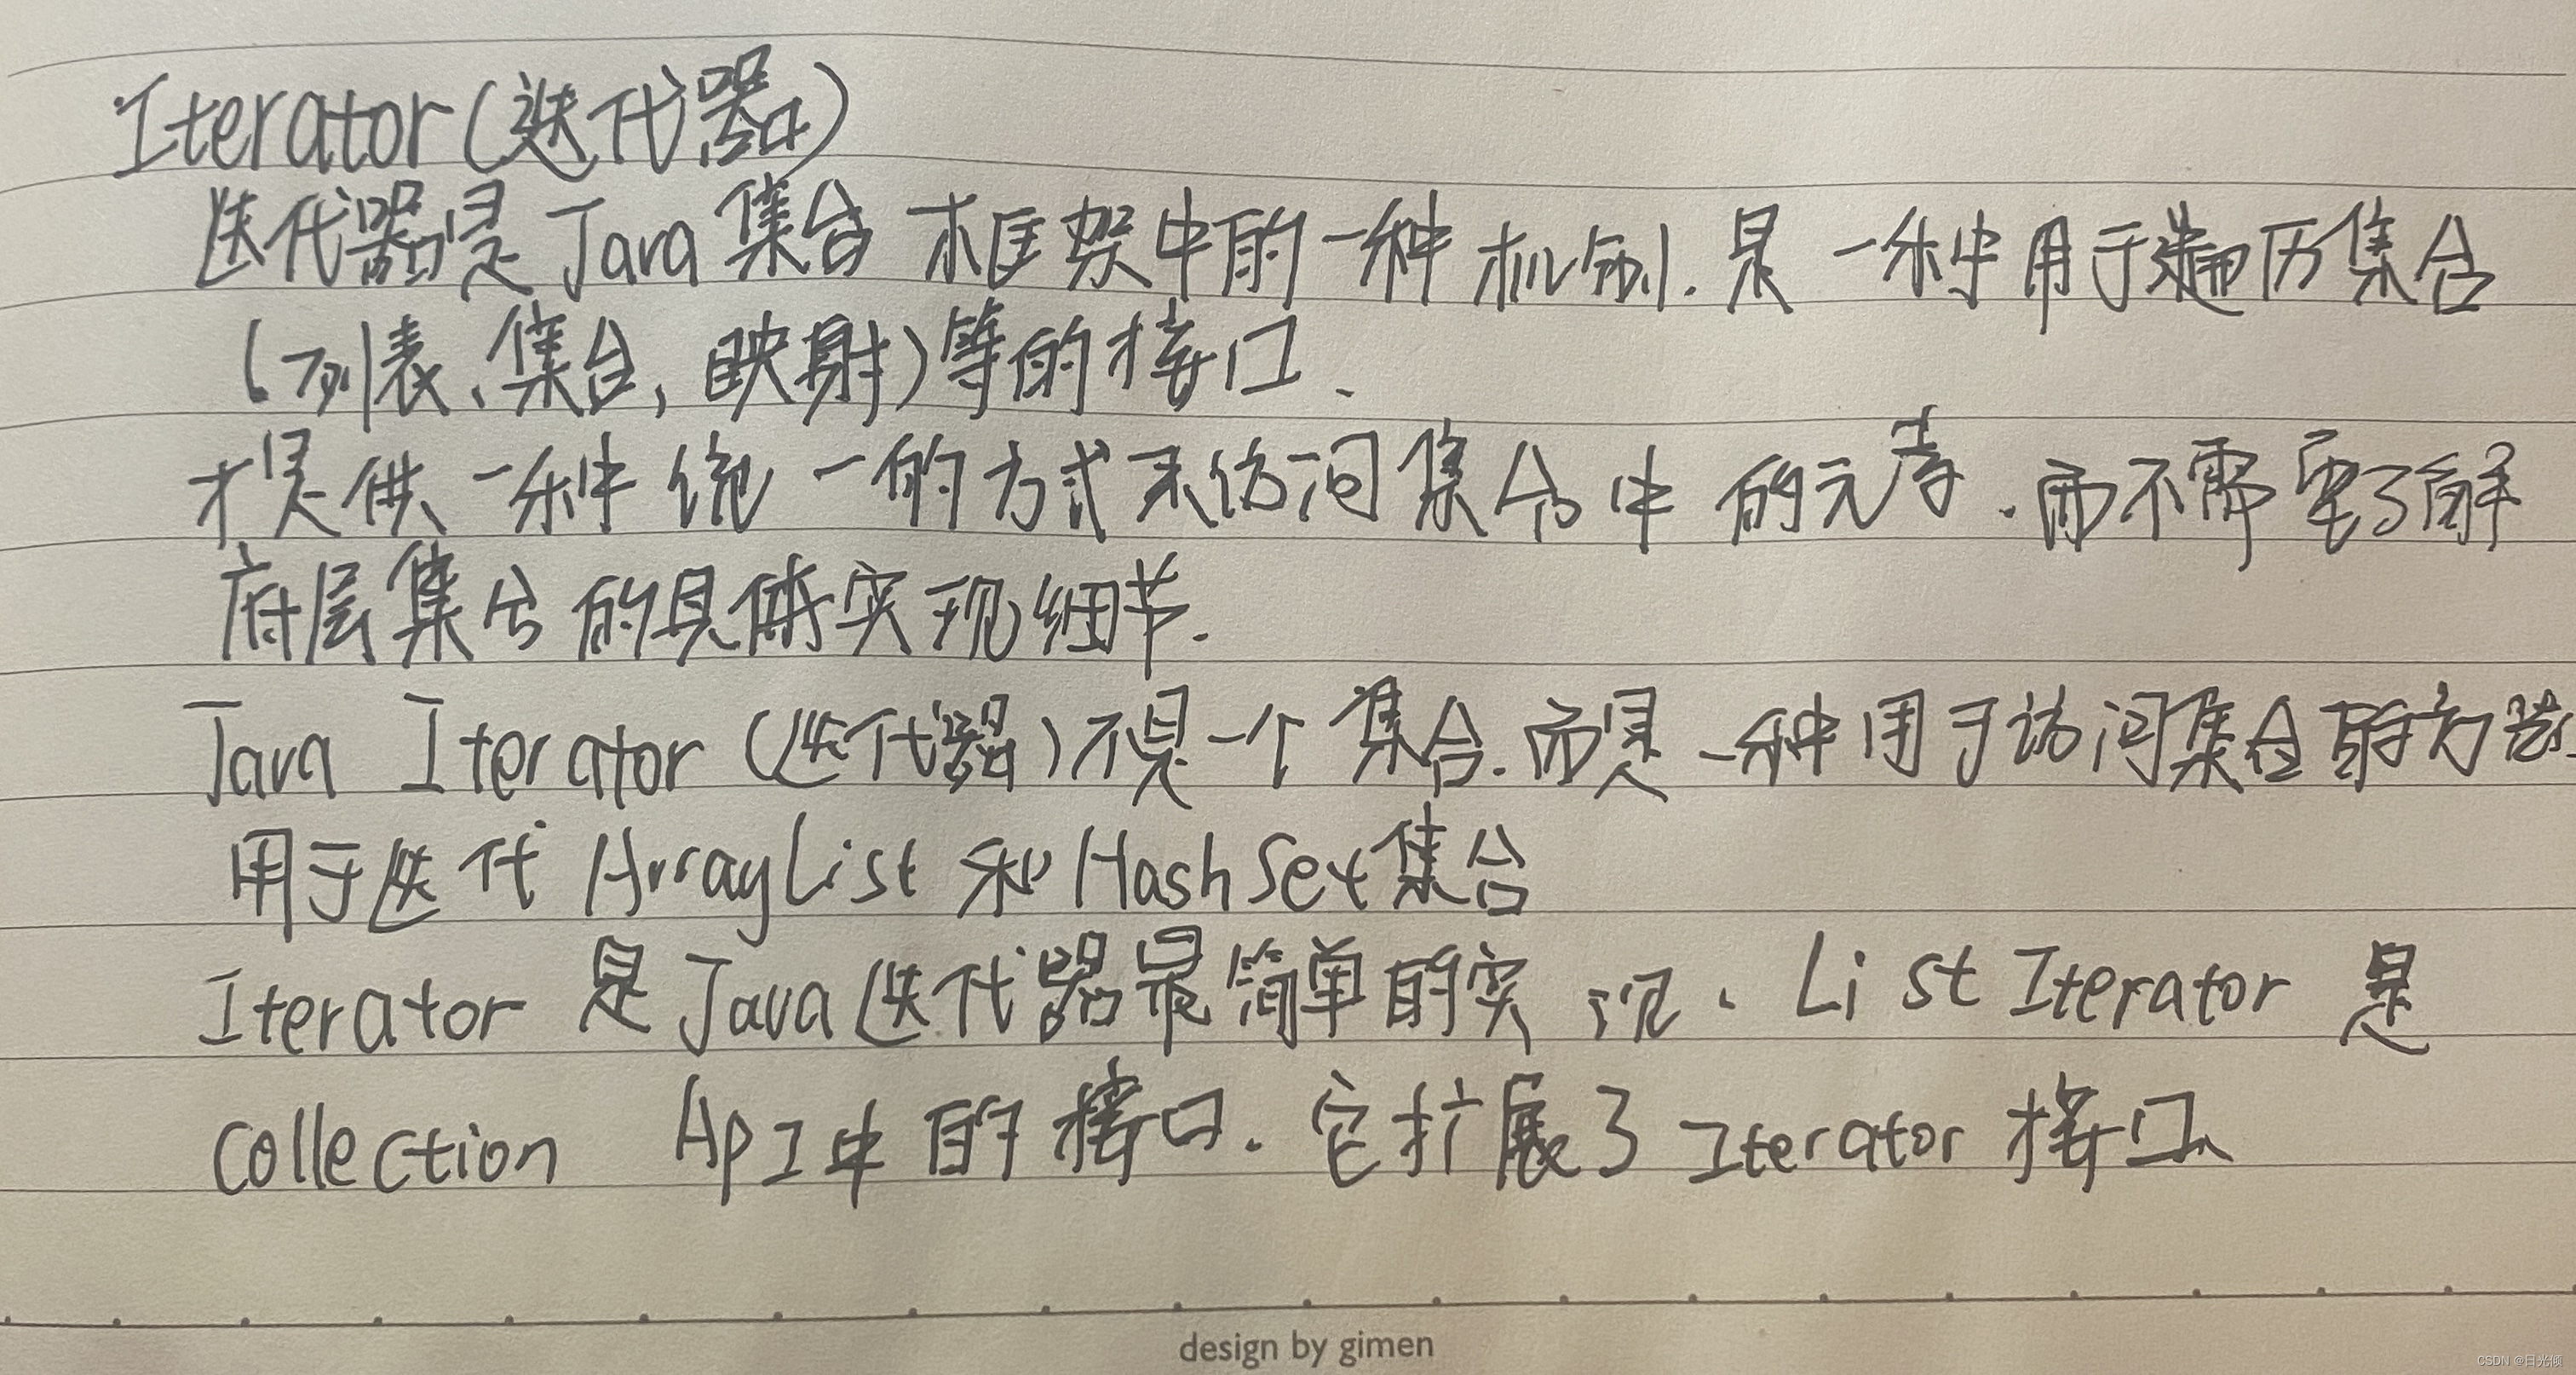 Iterator(迭代器)
迭代器是Java集合框架中的一种机制.是一种用于遍历集合
(列表、集合,映射)等的接口、
提供一种统一的方式来访问集合中的元素.而不需要了解
底层集合的具体实现细节.
Java Iterator(迭代器)不是一个集合.而是一种用于访问集合的方法.
用于迭代ArrayList和HashSet集合
Iterator是Java迭代器最简单的实现、ListIterator是
Collection ApI中的接口.它扩展了Iterator接口
design by gimen
CSDN @日光倾